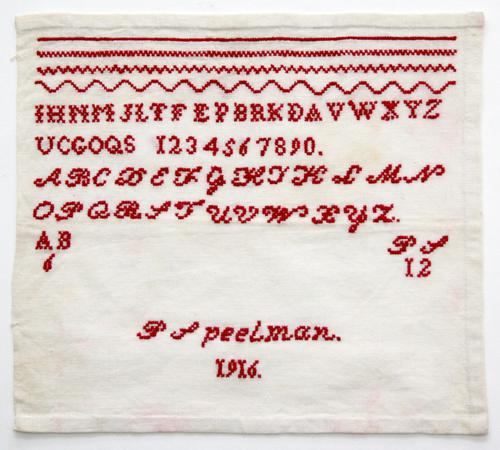 IHNMJLTFEPBRKDAVWXYZ
UCGOQS 1234567890.
ABCDEFGHIKLMN
OPQRSTUVWXYZ.
AB PS
6 12
P Speelman.
1916.